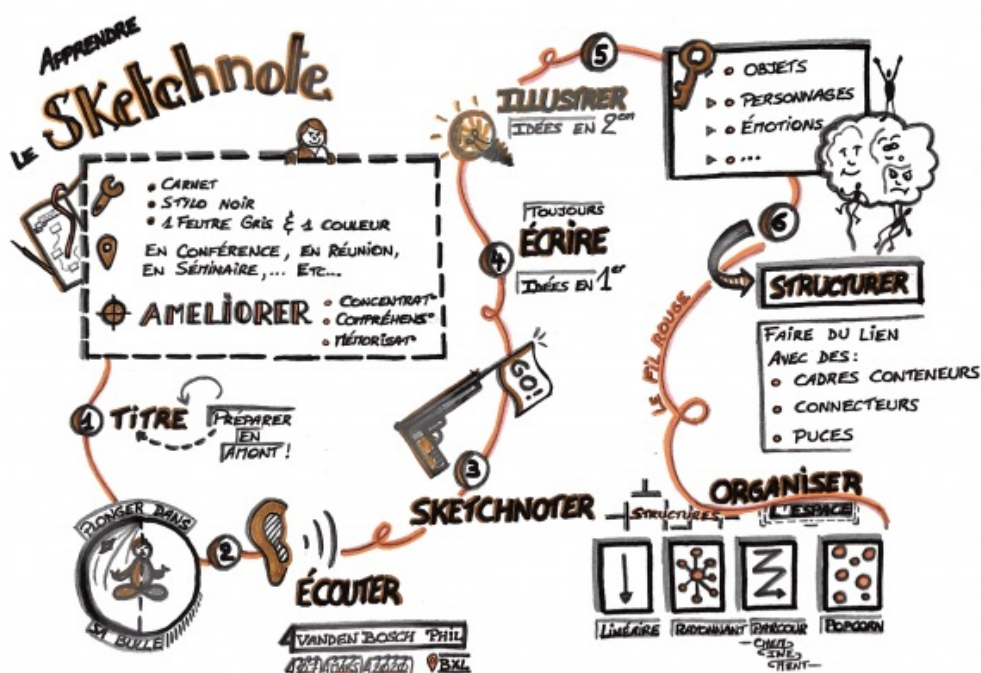 APPRENDRE
LE SKETCHNOTE
• CARNET
• STYLO NOIR
• 1 FEUTRE GRIS & 1 COULEUR
EN CONFÉRENCE, EN RÉUNION,
EN SÉMINAIRE,... ETC...
AMELIORER
• CONCENTRAT°
• COMPRÉHENS°
• MÉMORISAT°
1 TITRE
PRÉPARER
EN
AMONT !
PLONGER DANS
SA BULLE
2
ÉCOUTER
VANDEN BOSCH PHIL
BXL
3
SKETCHNOTER
GO!
4
TOUJOURS
ÉCRIRE
IDÉES EN 1er
5
ILLUSTRER
IDÉES EN 2en
• OBJETS
• PERSONNAGES
• ÉMOTIONS
• ...
6
STRUCTURER
FAIRE DU LIEN
AVEC DES:
• CADRES CONTENEURS
• CONNECTEURS
• PUCES
LE FIL ROUGE
ORGANISER
L'ESPACE
STRUCTURES
LINÉAIRE
RAYONNANT
PARCOUR
CHEM
INE
MENT
POPCORN